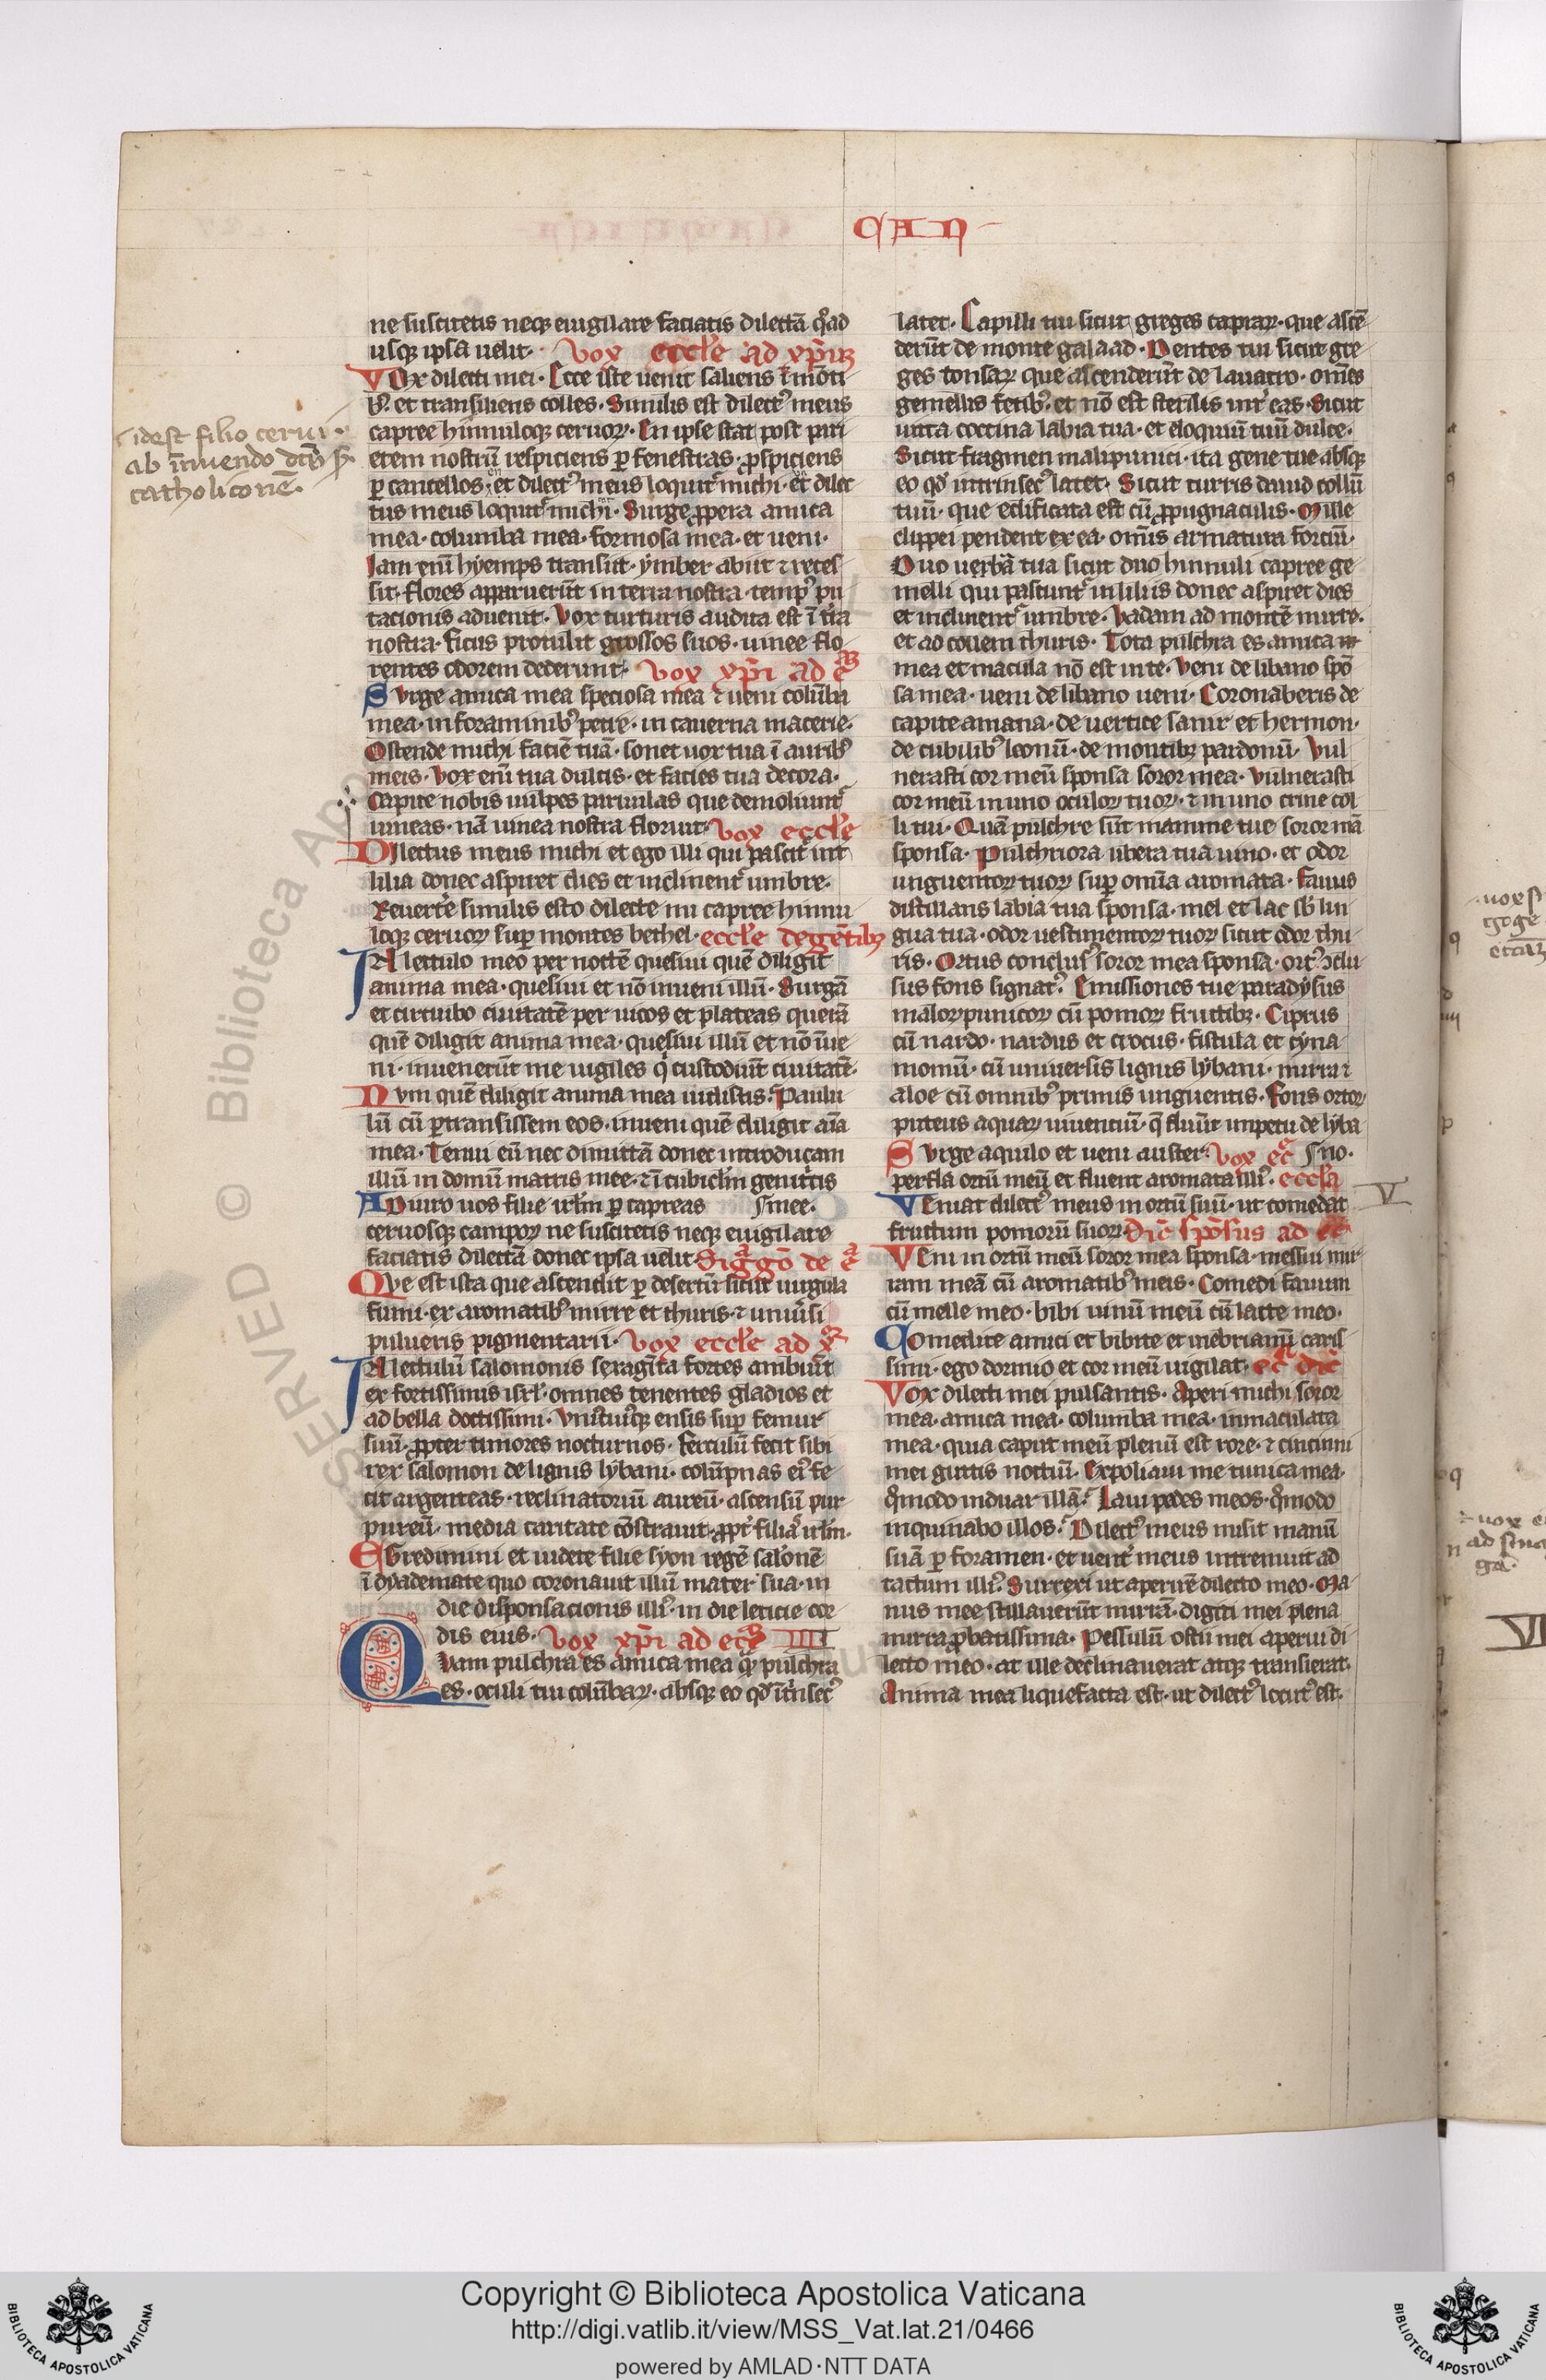 CAN
ne suscitetis neq; euigilare faciatis dilectā q°ad
usq; ipsa uelit· vox eccl'e ad xp̄m
VOx dilecti mei· Ecce iste uenit saliens ī mōti
b9 et transiliens colles· Similis est dilect9 meus
capree hinnuloq; ceruoꝝ· En ipse stat post pari
etem nostrū respiciens ꝑ fenestras· ꝓspiciens
ꝑ cancellos· et dilect9 meus loquit᷑ michi· et dilec
tus meus loquit᷑ michi· Surge ꝓpera amica
mea· columba mea· formosa mea· et ueni·
Iam enī hyemps transiit· ymber abiit ⁊ reces
sit· flores apparuerūt in terra nostra· temp9 pu
tacionis aduenit· Vox turturis audita est ī t̄ra
nostra· ficus protulit grossos suos· uinee flo
rentes odorem dederunt· vox xp̄i ad
SVrge amica mea speciosa mea ⁊ ueni colūba
mea· in foraminib9 petre· in cauerna macerie·
Ostende michi faciē tuā· sonet uox tua ī aurib9
meis· Vox enī tua dulcis· et facies tua decora·
Capite nobis uulpes paruulas que demoliunt᷑
uineas· nā uinea nostra floruit· vox eccl'e
DIlectus meus michi et ego illi qui pascit᷑ int᷑
lilia donec aspiret dies et inclinent᷑ umbre·
Reuertere similis esto dilecte mi capree hinnu
loq; ceruoꝝ suꝑ montes bethel· eccl'e de gētib;
IN lectulo meo per noctē quesiui quē diligit
anima mea· quesiui et nō inueni illū· Surgā
et circuibo ciuitatē per uicos et plateas querā
quē diligit anima mea· quesiui illū et nō īue
ni· inuenerūt me uigiles q' custodiūt ciuitatē·
NVm quē diligit anima mea uidistis· Paulu
lū cū ꝑtransissem eos· inueni quē diligit aīa
mea· Tenui eū nec dimittā donec introducam
illū in domū matris mee· ⁊ ī cubicl'm genitricis
ADiuro uos filie irl'm ꝑ capreas mee·
ceruosq; campoꝝ ne suscitetis neq; euigilare
faciatis dilectā donec ipsa uelit· de
QVe est ista que ascendit ꝑ desertū sicut uirgula
fumi· ex aromatib9 mirre et thuris· ⁊ uniu̇si
pulueris pigmentarii· vox eccl'e ad
IN lectulū salomonis sexagīta fortes ambiūt
ex fortissimis isrl'· omnes tenentes gladios et
ad bella doctissimi· Vniuscuiusq; ensis suꝑ femur
suū· ꝓpter timores nocturnos· ferculū fecit sibi
rex salomon de lignis lybani· colūpnas ei9 fe
cit argenteas· reclinatoriū aureū· ascensū pur
pureū· media caritate cōstrauit· ꝓpt᷑ filias irl'm·
EGredimini et uidete filie syon regē salonē
ī dyademate quo coronauit illū mater sua· in
die disponsacionis illi9· in die leticie cor
dis eius· vox xp̄i ad IIII
QVam pulchra es amica mea q̄ pulchra
es· oculi tui colūbaꝝ· absq; eo qd' īt᷑nsec9
latet· Capilli tui sicut greges capraꝝ· que ascē
derūt de monte galaad· Dentes tui sicut gre
ges tonsaꝝ que ascenderūt de lauacro· om̄es
gemellis fetib9· et nō est sterilis int᷑ eas· Sicut
uitta coccina labia tua· et eloquiū tuū dulce·
Sicut fragmen mali punici· ita gene tue absq;
eo qd' intrinsec9 latet· Sicut turris dauid collū
tuū· que edificata est cū ꝓpugnaculis· Mille
clippei pendent ex ea· om̄is armatura forciū·
Duo ubera tua sicut duo hinnuli capree ge
melli qui pascunt᷑ in liliis donec aspiret dies
et inclinent᷑ umbre· Vadam ad montē mirre·
et ad collem thuris· Tota pulchra es amica m
mea et macula nō est in te· Veni de libano spō
sa mea· ueni de libano ueni· Coronaberis de
capite amana· de uertice sanir et hermon·
de cubilib9 leonū· de montib; pardorū· Vul
nerasti cor meū sponsa soror mea· Vulnerasti
cor meū in uno oculoꝝ tuoꝝ· ⁊ in uno crine col
li tui· Quā pulchre sūt mamme tue soror mā
sponsa· Pulchriora ubera tua uino· et odor
unguentoꝝ tuoꝝ suꝑ om̄ia aromata· fauus
distillans labia tua sponsa· mel et lac sb' lin
gua tua· odor uestimentoꝝ tuoꝝ sicut odor thu
ris· Ortus conclus9 soror mea sponsa· ort9 ↄclu
sus fons signat9· Emissiones tue paradysus
maloꝝ punicoꝝ cū pomoꝝ fructib;· Ciprus
cū nardo· nardus et crocus· fistula et cyna
momū· cū uniuersis lignis lybani· mirra ⁊
aloe cū omnib9 primis unguentis· Fons ortoꝝ
puteus aquaꝝ uiuentiū· q̄ fluūt impetu de lyba
SVrge aquilo et ueni auster· vox ec̄ no·
perfla ortū meū et fluent aromata illi9· eccl'a
VEniat dilect9 meus in ortū suū· ut comedat
fructum pomorū suoꝝ· dic̄ spōsus ad
VEni in ortū meū soror mea sponsa· messui mir
ram meā cū aromatib9 meis· Comedi fauum
cū melle meo· bibi uinū meū cū lacte meo·
COmedite amici et bibite et inebriamī caris
simi· ego dormio et cor meū uigilat· ec̄ dic̄
VOx dilecti mei pulsantis· Aperi michi soror
mea· amica mea· columba mea· inmaculata
mea· quia caput meū plenū est rore· ⁊ cincinni
mei guttis noctiū· Expoliaui me tunica mea·
q°modo induar illā· Laui pedes meos· q°modo
inquinabo illos· Dilect9 meus misit manū
suā ꝑ foramen· et uent᷑ meus intremuit ad
tactum illi9· Surrexi ut aperirē dilecto meo· Ma
nus mee stillauerūt mirrā· digiti mei plena
mirra ꝓbatissima· Pessulū ostii mei aperui di
lecto meo· at ille declinauerat atq; transierat·
Anima mea liquefacta est· ut dilect9 locut9 est·
idest filio cerui·
ab īnuendo
catholiconē·
V
VI
Copyright © Biblioteca Apostolica Vaticana
http://digi.vatlib.it/view/MSS_Vat.lat.21/0466
powered by AMLAD·NTT DATA
BIBLIOTECA APOSTOLICA VATICANA
BIBLIOTECA APOSTOLICA VATICANA